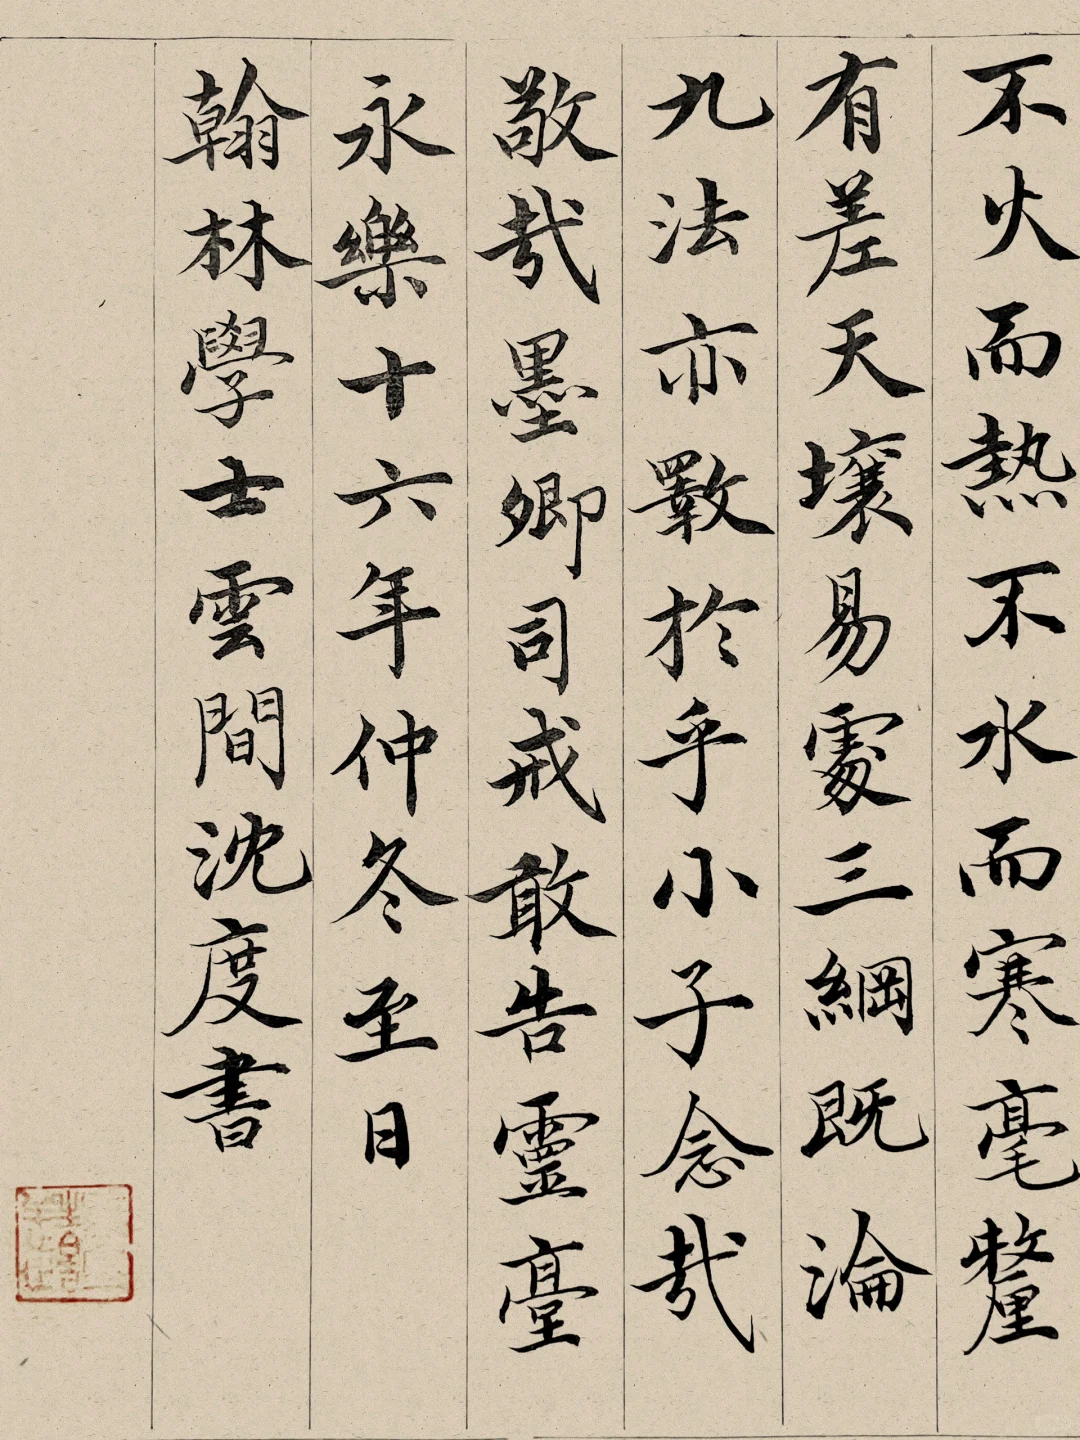 不火而熱不水而寒毫釐
有差天壤易處三綱既淪
九法亦斁於乎小子念哉
敬哉墨卿司戒敢告靈臺
永樂十六年仲冬至日
翰林學士雲間沈度書